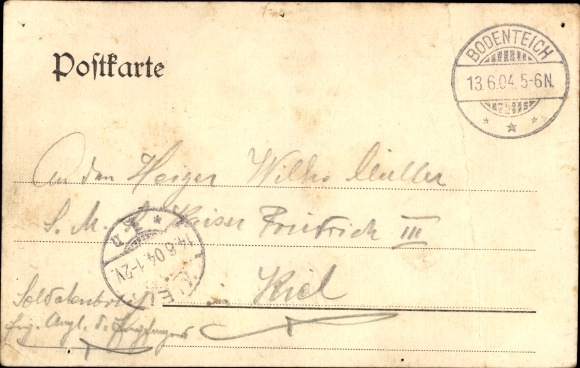 Postkarte
BODENTEICH
13.6.04.5-6N.
An den Heizer Wilh. Müller
S. M. S. Kaiser Friedrich III
14.6.04.1-2V
Kiel
Soldatenbrief
Eig. Angl. d. Empfängers